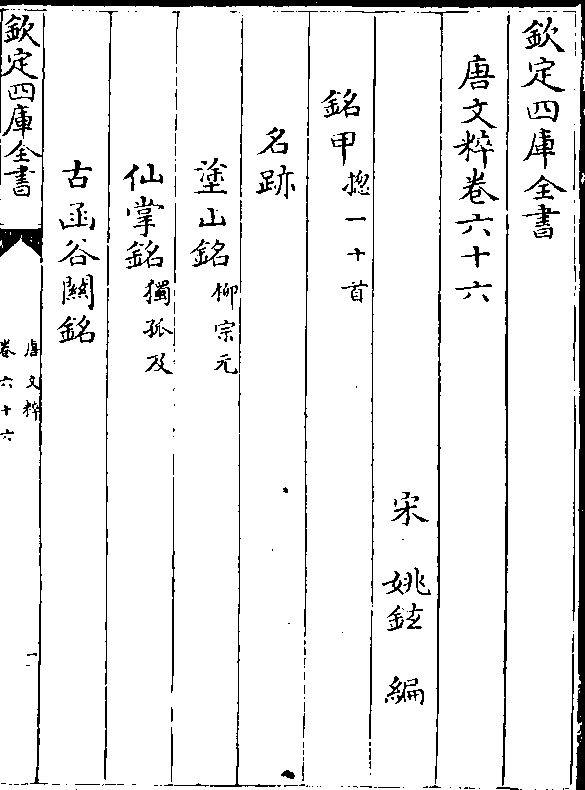 欽定四庫全書
唐文粹卷六十六
宋 姚鉉 編
銘甲 揔一十首
名跡
塗山銘 柳宗元
仙掌銘 獨孤及
古函谷關銘
欽定四庫全書
唐文粹
卷六十六
一